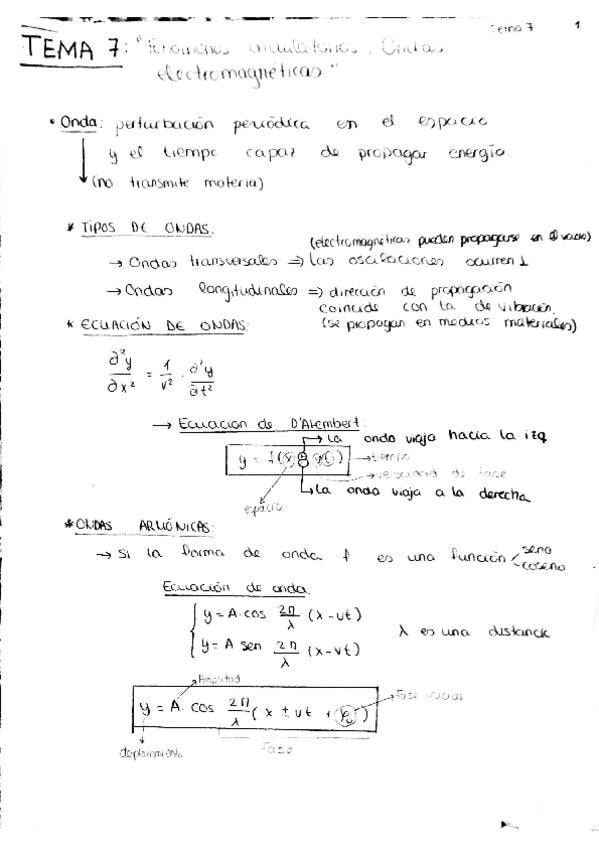 Tema 7 1
TEMA 7: "Fenómenos ondulatorios. Ondas
electromagnéticas"
• Onda: perturbación periódica en el espacio
y el tiempo capaz de propagar energía.
(no transmite materia)
* TIPOS DE ONDAS:
(electromagnéticas pueden propagarse en el vacío)
→ Ondas transversales ⇒ las oscilaciones ocurren ⊥
→ Ondas longitudinales ⇒ dirección de propagación
coincide con la de vibración.
(se propagan en medios materiales)
* ECUACIÓN DE ONDAS:
∂²y/∂x² = 1/v² · ∂²y/∂t²
→ Ecuacion de D'Alembert:
→ La onda viaja hacia la izq
y = f(x ± vt) → tiempo
→ velocidad de fase
→ La onda viaja a la derecha
espacio
* ONDAS ARMÓNICAS:
→ Si la forma de onda f es una función < seno
coseno
Ecuación de onda:
y = A·cos 2π/λ (x - vt)
y = A sen 2π/λ (x - vt)
λ es una distancia
Amplitud
Fase inicial
y = A· cos 2π/λ (x ± vt + φ₀)
desplazamiento
fase